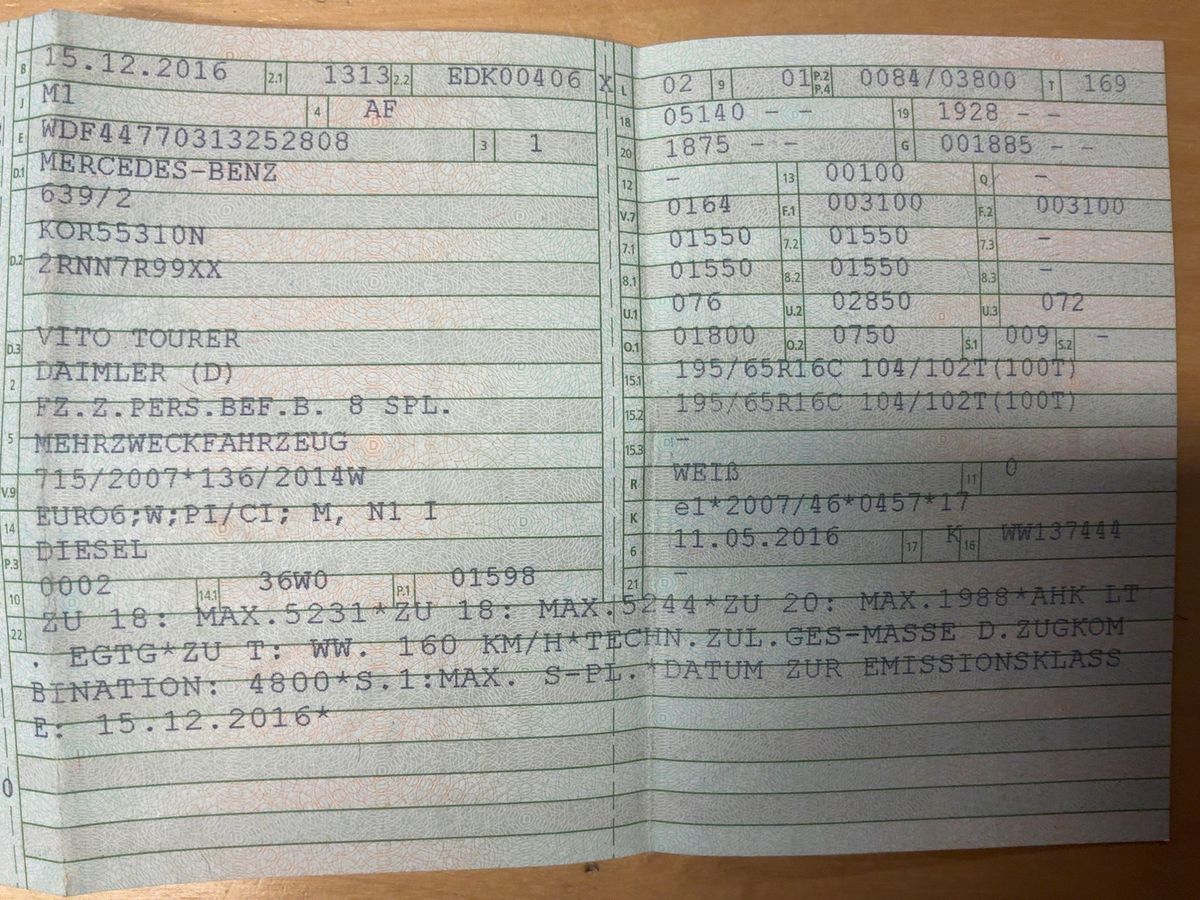 B 15.12.2016 2.1 1313 2.2 EDK00406 X
J M1 4 AF
E WDF44770313252808 3 1
D.1 MERCEDES-BENZ
639/2
D.2 KOR55310N
2RNN7R99XX
D.3 VITO TOURER
2 DAIMLER (D)
5 FZ.Z.PERS.BEF.B. 8 SPL.
MEHRZWECKFAHRZEUG
V.9 715/2007*136/2014W
14 EURO6;W;PI/CI; M, N1 I
P.3 DIESEL
10 0002 14.1 36W0 P.1 01598
L 02 9 01 P.2 P.4 0084/03800 T 169
18 05140 - - 19 1928 - -
20 1875 - - G 001885 - -
12 - 13 00100 Q -
V.7 0164 F.1 003100 F.2 003100
7.1 01550 7.2 01550 7.3 -
8.1 01550 8.2 01550 8.3 -
U.1 076 U.2 02850 U.3 072
O.1 01800 O.2 0750 S.1 009 S.2 -
15.1 195/65R16C 104/102T(100T)
15.2 195/65R16C 104/102T(100T)
15.3 -
R WEIß 11 0
K e1*2007/46*0457*17
6 11.05.2016 17 K 16 WW137444
21 -
22 ZU 18: MAX.5231*ZU 18: MAX.5244*ZU 20: MAX.1988*AHK LT
. EGTG*ZU T: WW. 160 KM/H*TECHN.ZUL.GES-MASSE D.ZUGKOM
BINATION: 4800*S.1:MAX. S-PL.*DATUM ZUR EMISSIONSKLASS
E: 15.12.2016*
0